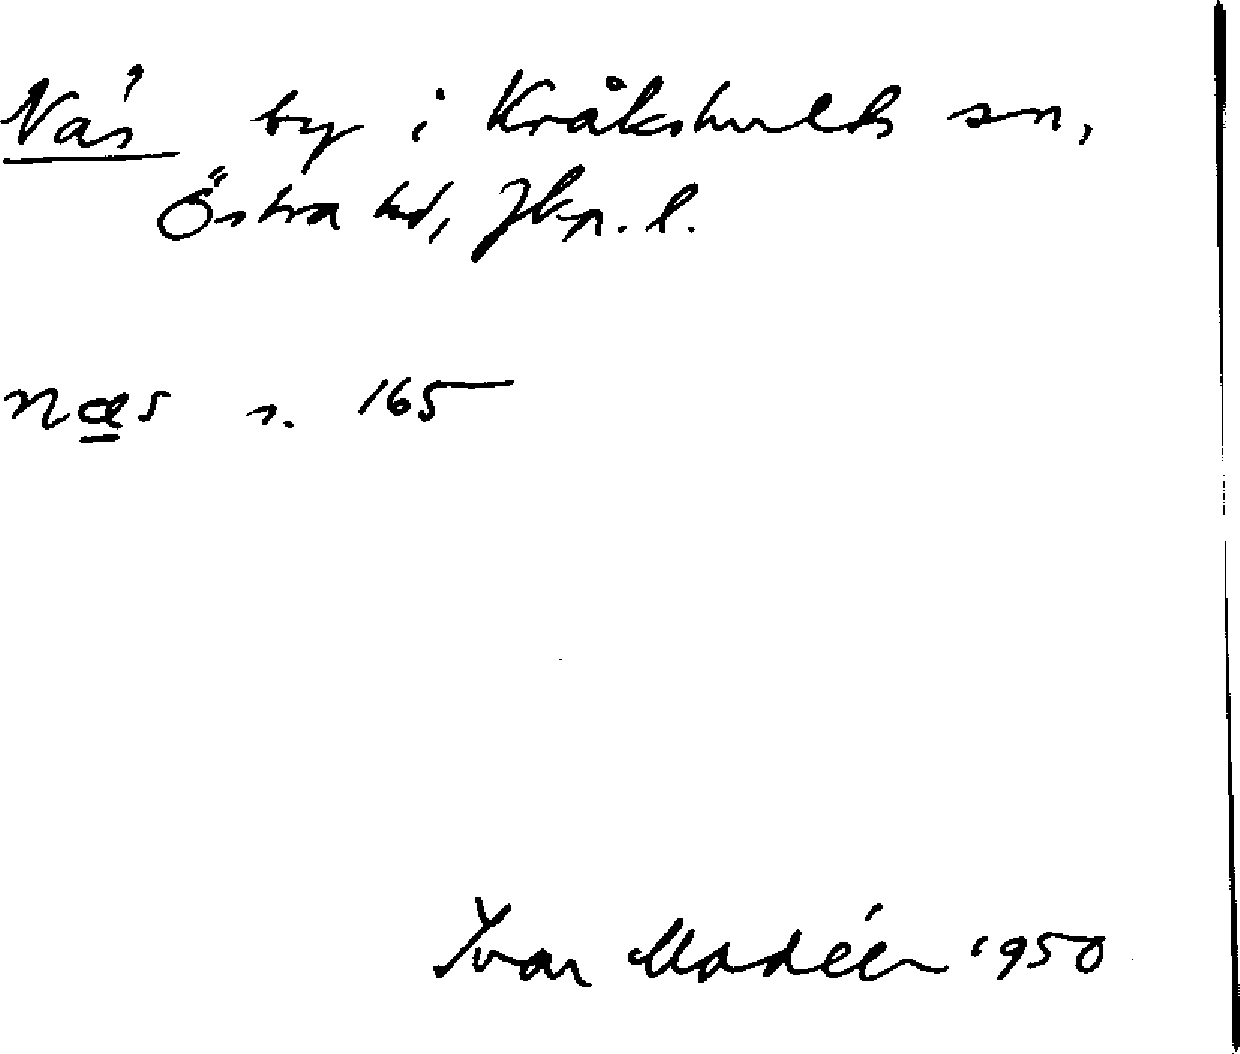 Näs by i Kråkshults sn,
Östra hd, Jkp. l.
næs s. 165
Ivar Modéer 1950